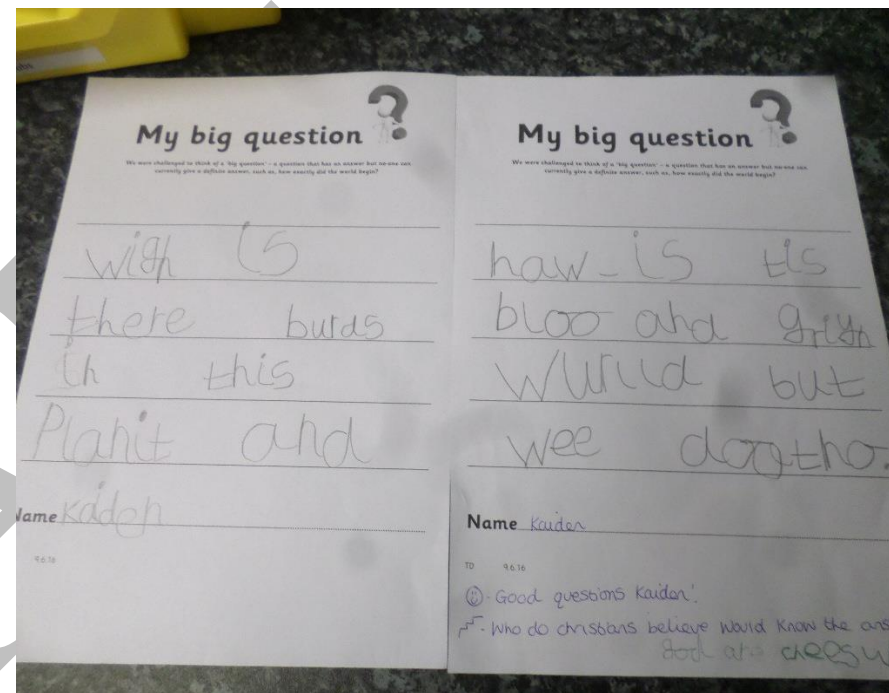 My big question
We were challenged to think of a 'big question' – a question that has an answer but no-one can
currently give a definite answer, such as, how exactly did the world begin?
wigh is
there burds
in this
Planit and
Name Kaiden
9.6.16
My big question
We were challenged to think of a 'big question' – a question that has an answer but no-one can
currently give a definite answer, such as, how exactly did the world begin?
haw - is tis
bloo and
but
wee
Name Kaiden
TD 9.6.16
- Good questions Kaiden!
- Who do christians believe would know the ans
god and